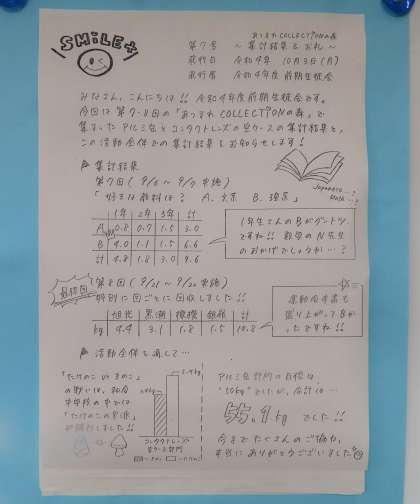 SMiLE+
あつまれCOLLECTIONの森
第7号 ～集計結果&お礼～
発行日 令和4年 10月3日(月)
発行所 令和4年度 前期生徒会
みなさん、こんにちは!! 令和4年度前期生徒会です。
今回は第7・8回の「あつまれCOLLECTIONの森」で
集まったアルミ缶とコンタクトレンズの空ケースの集計結果と、
この活動全体での集計結果をお知らせします!
集計結果
「好きな教科は? A.文系 B.理系」
Japanese...?
Math...?
1年 2年 3年 計
A 0.8 0.7 1.5 3.0
B 4.0 1.1 1.5 6.6
計 4.8 1.8 3.0 9.6
1年生さんのBがダントツ
ですね!! 数学のN先生
のおかげでしょうか…?
最終回
第8回
組別に回ごとに回収しました!!
計
kg 4.4 3.1 1.8 1.5 10.8
盛り上がってよか
ったですね!!
活動全体を通して…
「たけのこ vs きのこ」
の戦いは、
中学校の中では
「たけのこの里派」
が勝利しました!!
コンタクトレンズ
空ケース部門
アルミ缶部門の目標は
"50kg"でしたが、合計は…
55.1kg でした!!
今までたくさんのご協力、
本当にありがとうございました